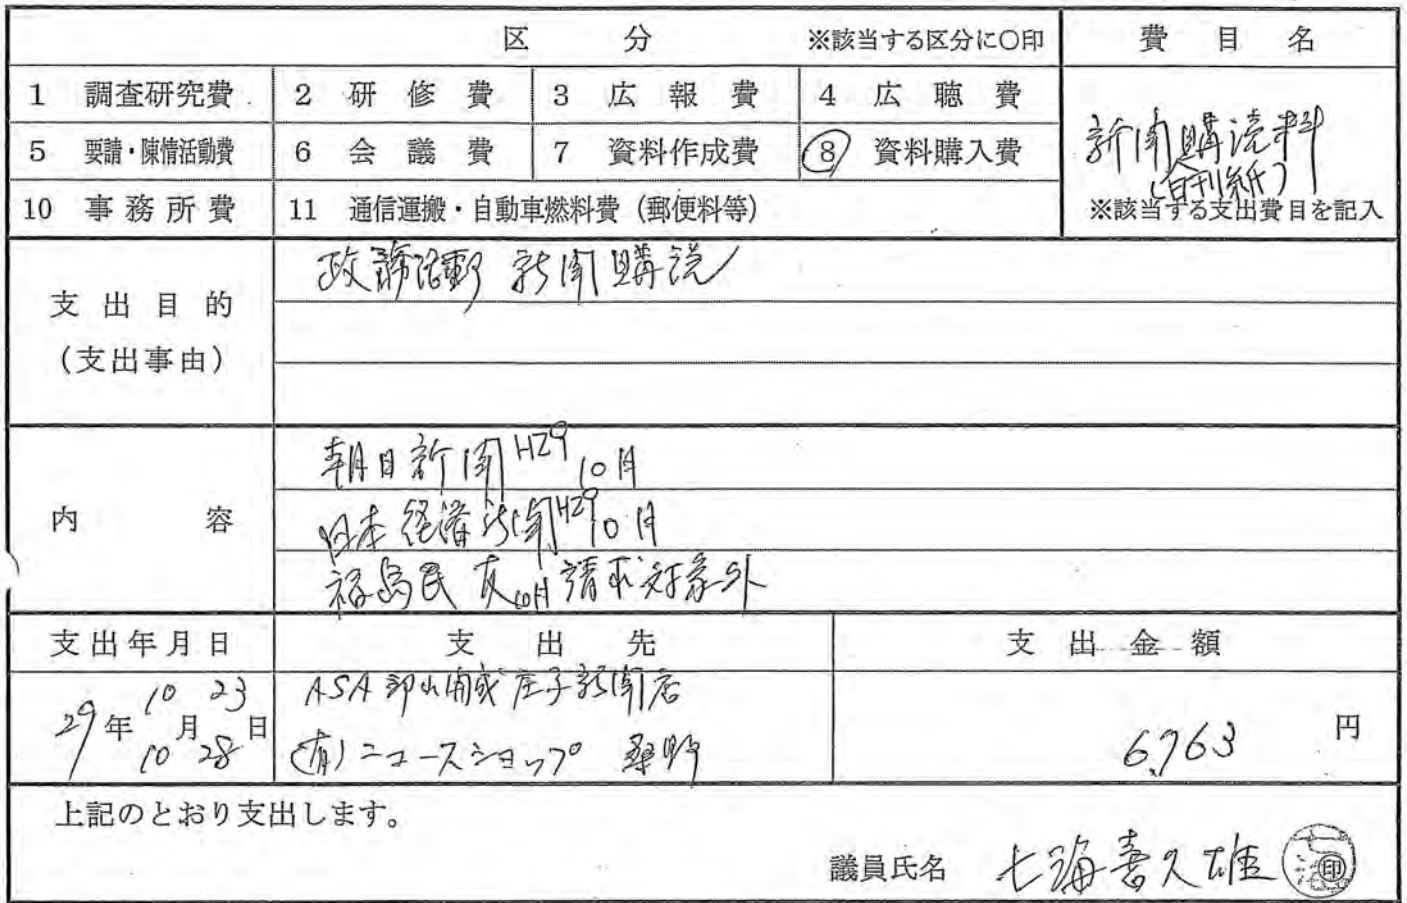 区 分 ※該当する区分に○印 費 目 名
1 調査研究費 2 研 修 費 3 広 報 費 4 広 聴 費
5 要請・陳情活動費 6 会 議 費 7 資料作成費 8 資料購入費
10 事務所費 11 通信運搬・自動車燃料費（郵便料等）
新聞購読料
（日刊紙）
※該当する支出費目を記入
支出目的
（支出事由）
政務活動 新聞購読
内 容
朝日新聞H29 10月
日本経済新聞H29 10月
福島民友10月請求対象外
支出年月日 支 出 先 支 出 金 額
29年 10月 23日
10 28
ASA郡山開成 庄子新聞店
(有)ニュースショップ 桑野
6,763 円
上記のとおり支出します。
議員氏名 七海喜久雄 印